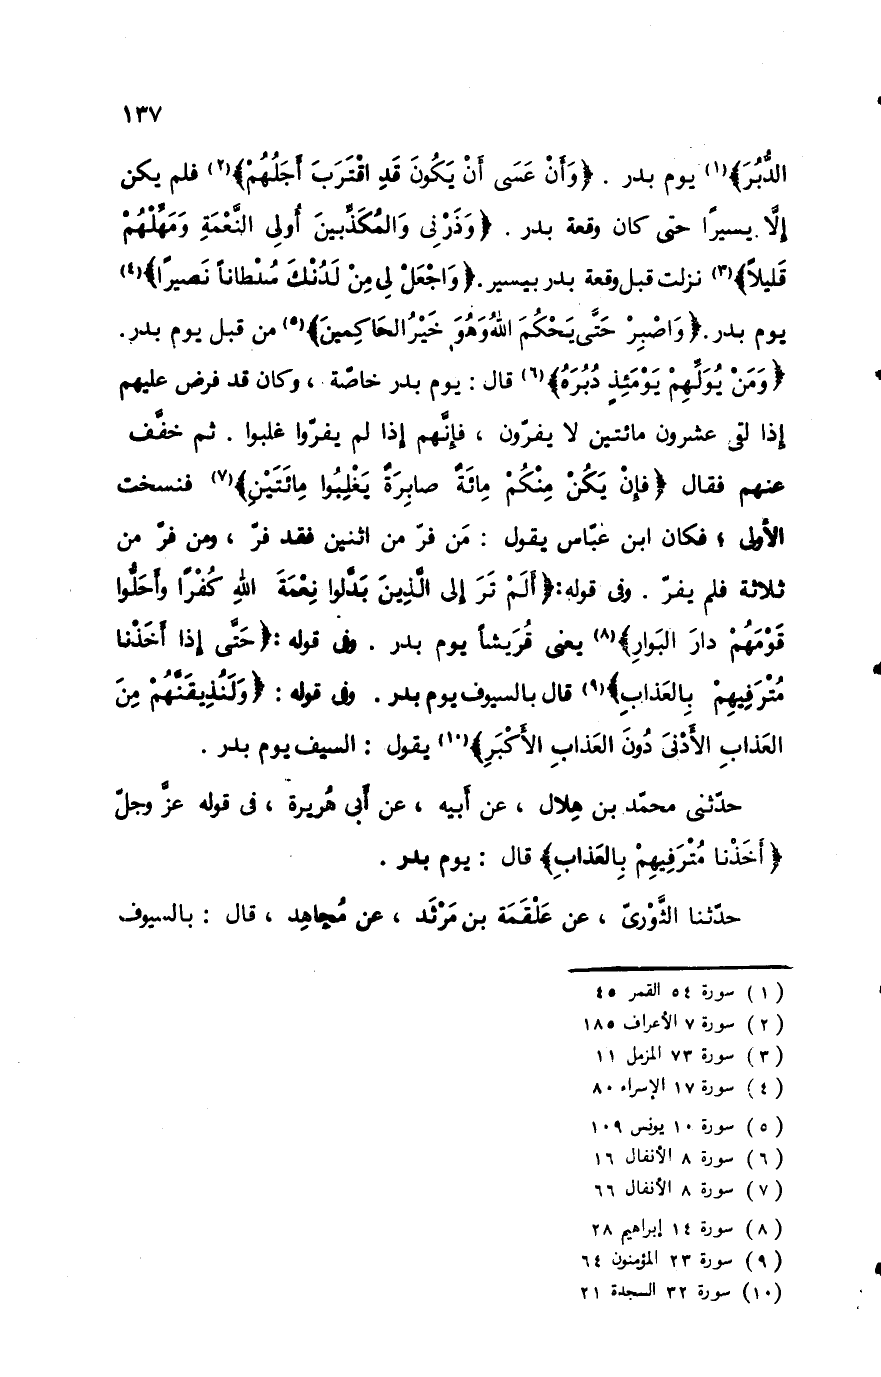 ١٣٧
الدُّبُرَ﴾(١) يوم بدر . ﴿وَأَنْ عَسَى أَنْ يَكُونَ قَدِ اقْتَرَبَ أَجَلُهُمْ﴾(٢) فلم يكن
إلَّا يسيرًا حتى كان وقعة بدر . ﴿وَذَرْنِى وَالمُكَذِّبينَ أُولِى النَّعْمَةِ وَمَهِّلْهُمْ
قَلِيلاً﴾(٣) نزلت قبل وقعة بدر بيسير. ﴿وَاجْعَلْ لِى مِنْ لَدُنْكَ سُلْطاناً نَصيرًا﴾(٤)
يوم بدر. ﴿وَاصْبِرْ حَتَّى يَحْكُمَ اللهُ وَهُوَ خَيْرُ الحَاكِمينَ﴾(٥) من قبل يوم بدر.
﴿وَمَنْ يُوَلِّهِمْ يَوْمَئِذٍ دُبُرَهُ﴾(٦) قال : يوم بدر خاصّة ، وكان قد فرض عليهم
إذا لقى عشرون مائتين لا يفرّون ، فإنَّهم إذا لم يفرّوا غلبوا . ثم خفَّف
عنهم فقال ﴿فإنْ يَكُنْ مِنْكُمْ مِائَةٌ صابِرَةٌ يَغْلِبُوا مِائَتَيْنِ﴾(٧) فنسخت
الأولى ؛ فكان ابن عبّاس يقول : مَن فرّ من اثنين فقد فرّ ، ومن فرّ من
ثلاثة فلم يفرّ . وفى قوله: ﴿أَلَمْ تَرَ إلى الَّذِينَ بَدَّلوا نِعْمَةَ اللهِ كُفْرًا وأَحَلُّوا
قَوْمَهُمْ دارَ البَوارِ﴾(٨) يعنى قُرَيشاً يوم بدر . وفى قوله : ﴿حَتَّى إذا أَخَذْنا
مُتْرَفِيهِمْ بِالعَذابِ﴾(٩) قال بالسيوف يوم بدر . وفى قوله : ﴿وَلَنُذِيقَنَّهُمْ مِنَ
العَذابِ الأَدْنَى دُونَ العَذابِ الأَكْبَرِ﴾(١٠) يقول : السيف يوم بدر .
حدّثنى محمّد بن هِلال ، عن أَبيه ، عن أَبى هُريرة ، فى قوله عزَّ وجلّ
﴿أَخَذْنا مُتْرَفِيهِمْ بِالعَذابِ﴾ قال : يوم بدر .
حدّثنا الثَّوْرىّ ، عن عَلْقَمَة بن مَرْثَد ، عن مُجاهِد ، قال : بالسيوف
(١) سورة ٥٤ القمر ٤٥
(٢) سورة ٧ الأعراف ١٨٥
(٣) سورة ٧٣ المزمل ١١
(٤) سورة ١٧ الإسراء ٨٠
(٥) سورة ١٠ يونس ١٠٩
(٦) سورة ٨ الأنفال ١٦
(٧) سورة ٨ الأنفال ٦٦
(٨) سورة ١٤ إبراهيم ٢٨
(٩) سورة ٢٣ المؤمنون ٦٤
(١٠) سورة ٣٢ السجدة ٢١